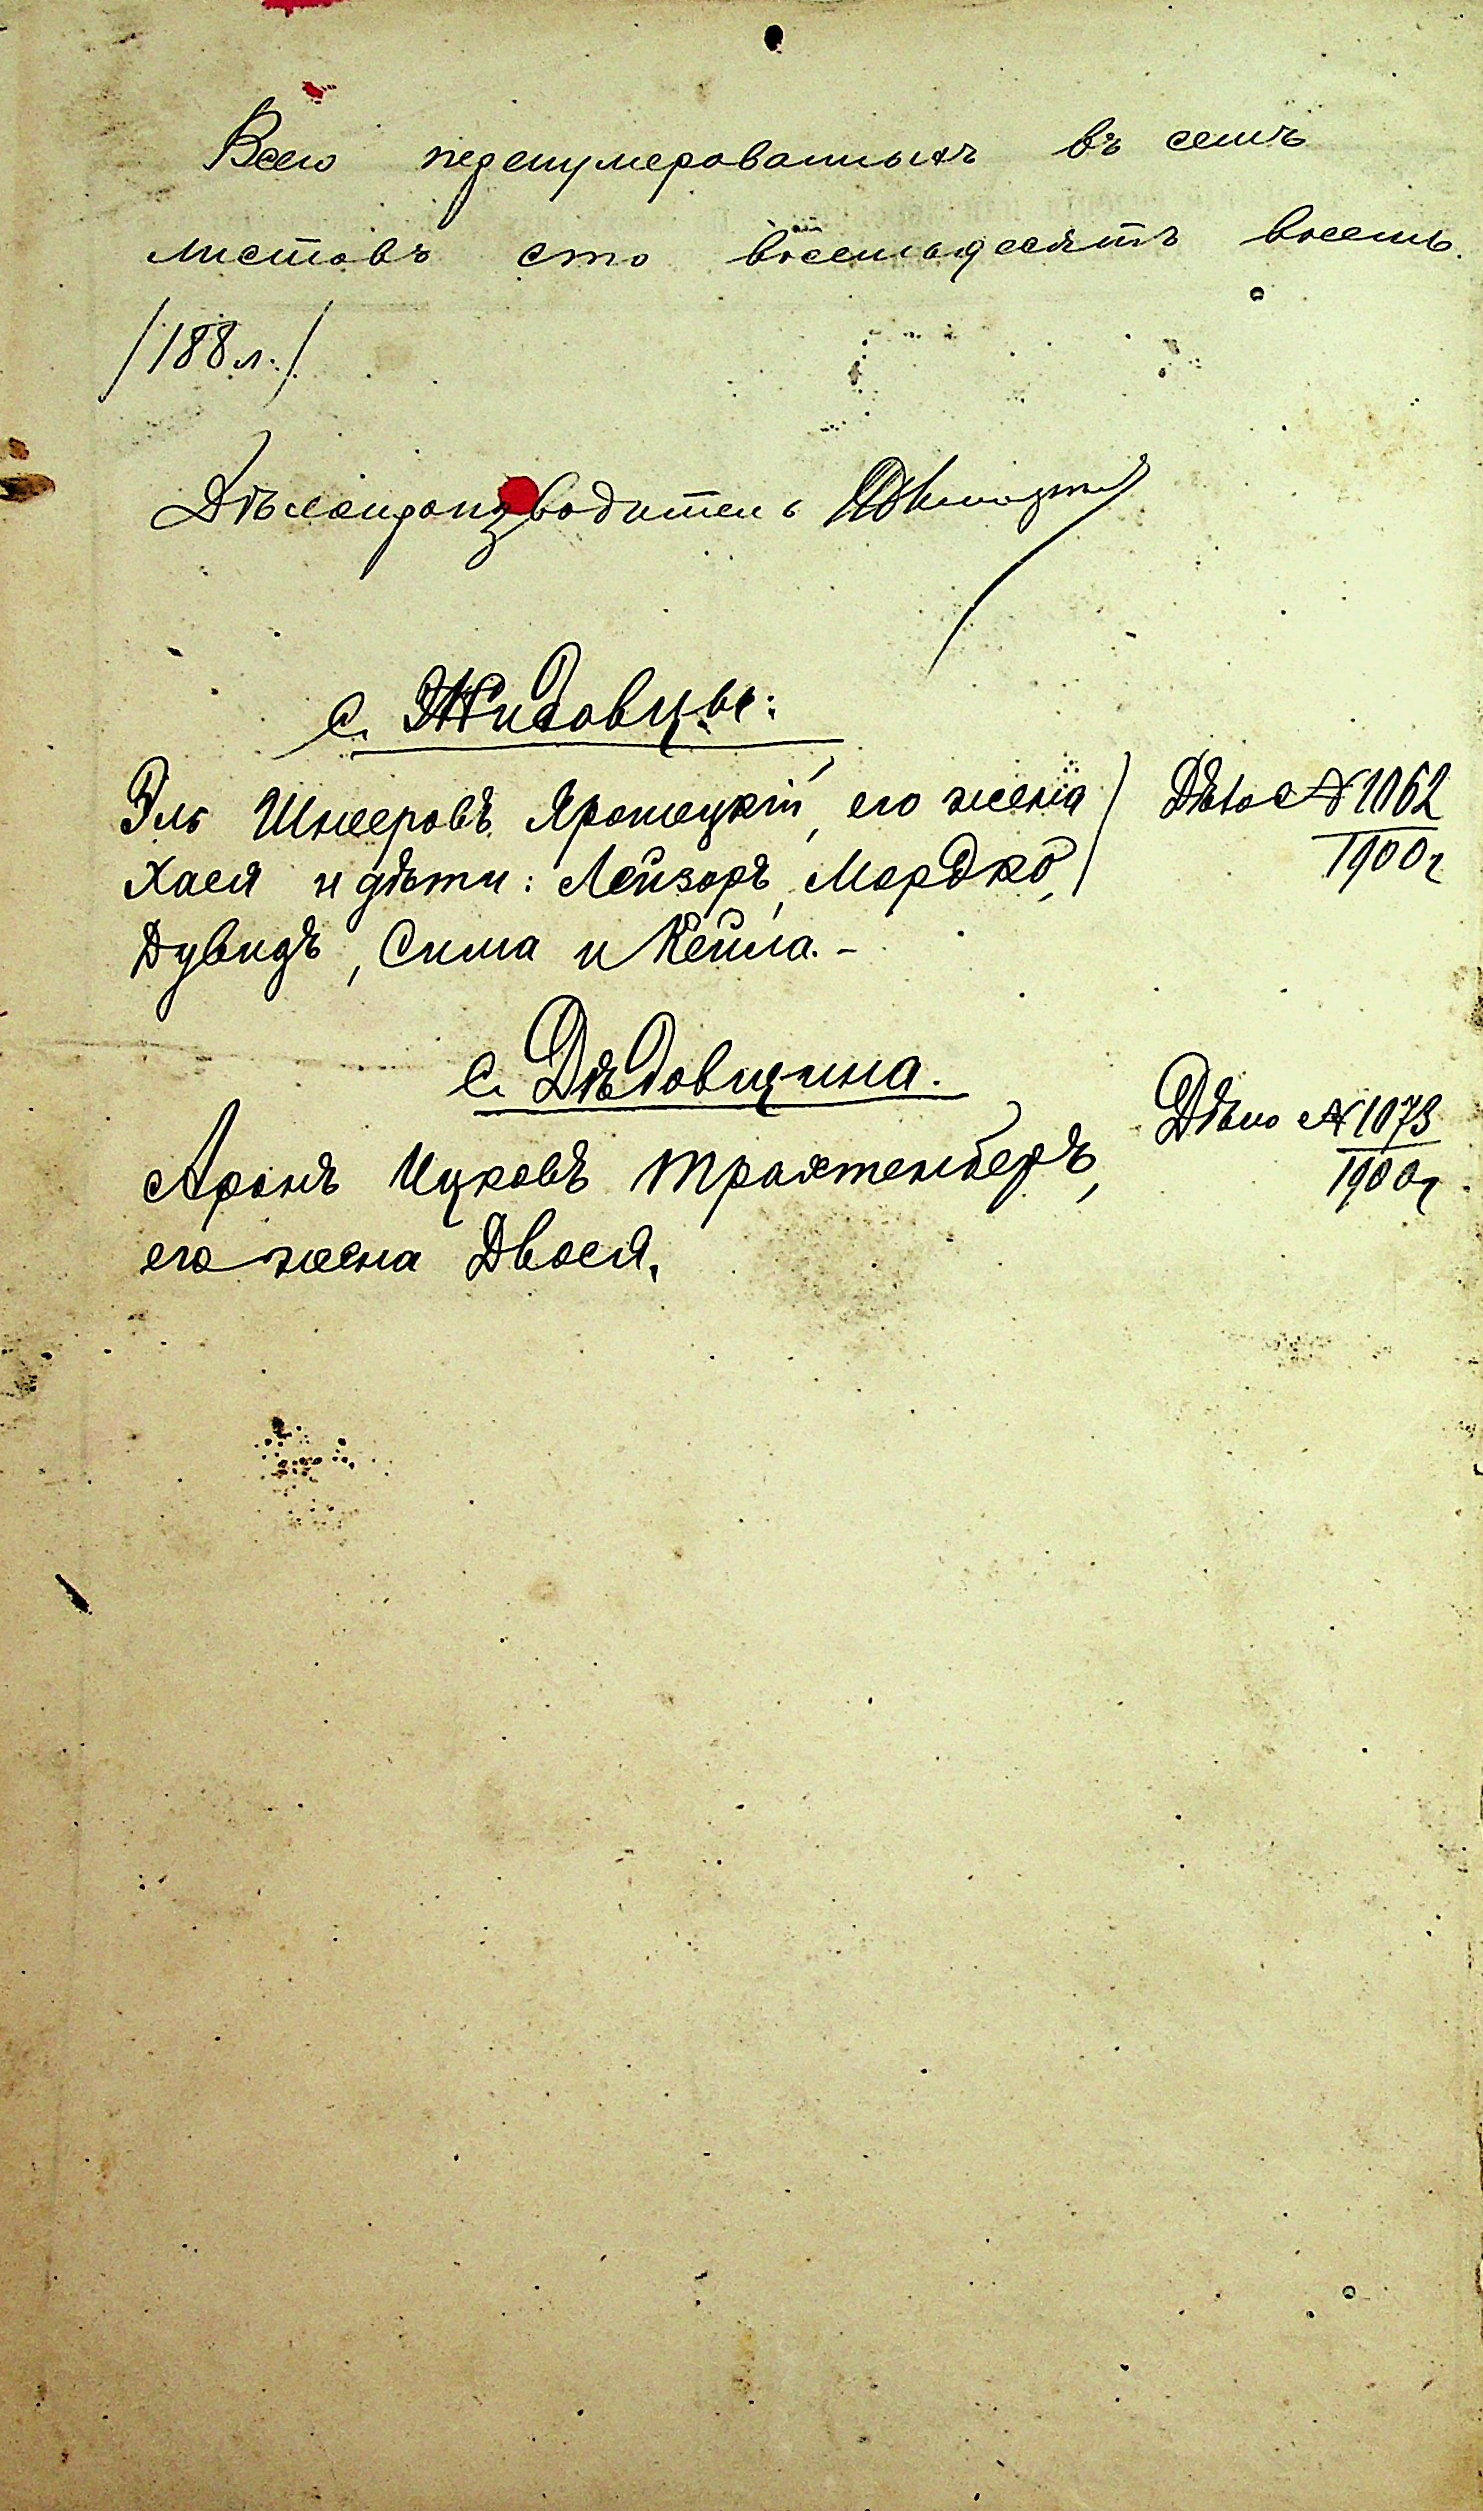 Всего перенумерованныхъ въ семъ
листовъ сто восемьдесятъ восемь.
/188 л./
Дѣлопроизводитель
с. Жидовцы:
Эль Шнееровъ Ярошецкій, его жена / Дѣло № 1062
Хася и дѣти: Лейзоръ, Мордко, / 1900 г
Дувидъ, Сима и Кейла. -
с. Дѣдовщина.
Аронъ Ицковъ Трахтенберъ, Дѣло № 1073
его жена Двося. 1900 г